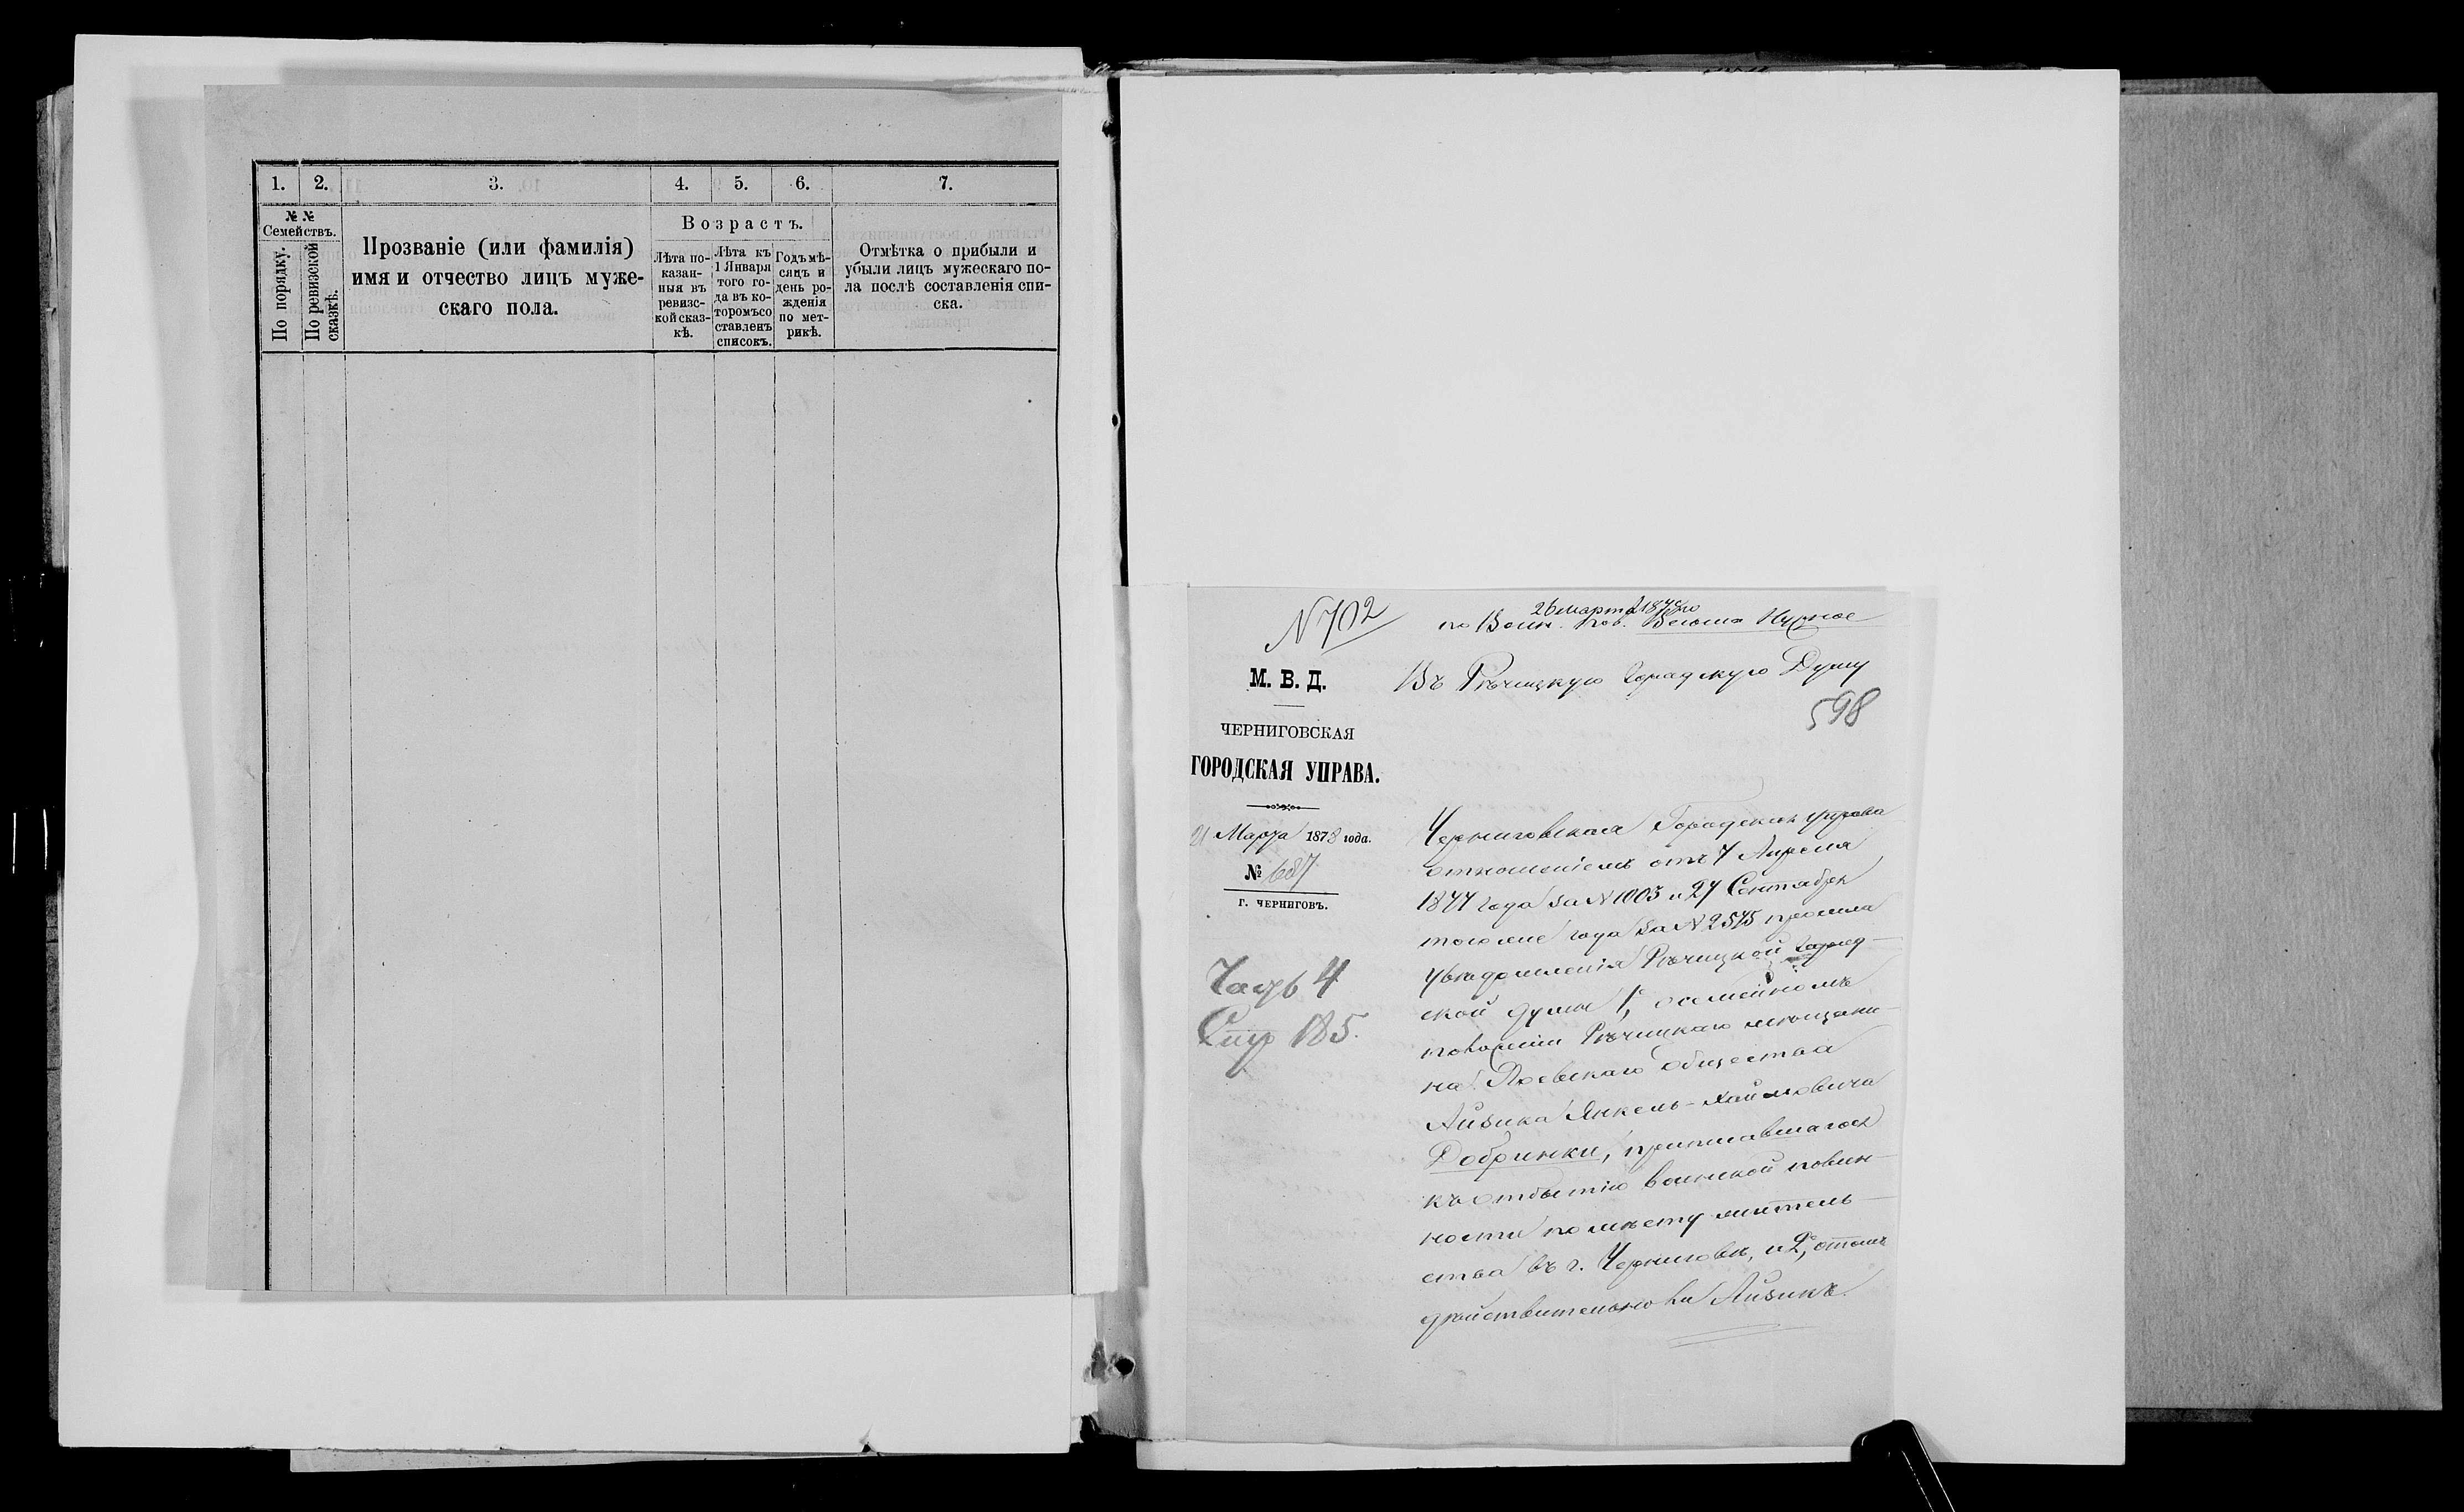 1. 2. 3. 4. 5. 6. 7.
№ №
Семействъ.
По порядку.
По ревизской
сказкѣ.
Прозваніе (или фамилія)
имя и отчество лицъ муже-
скаго пола.
Возрастъ.
Лѣта по-
казан-
ныя въ
ревизс-
кой сказ-
кѣ.
Лѣта къ
1 Января
того го-
да въ ко-
торомъ со
ставленъ
списокъ.
Годъ мѣ-
сяцъ и
день ро-
жденія
по мет-
рикѣ.
Отмѣтка о прибыли и
убыли лицъ мужескаго по-
ла послѣ составленія спи-
ска.
N 702
26 марта 1878 го
по Воин. пов.
Въ Рѣчицкую Городскую Думу
598
М. В. Д.
ЧЕРНИГОВСКАЯ
ГОРОДСКАЯ УПРАВА.
21 Марта 1878 года.
№ 687
Г. ЧЕРНИГОВЪ.
Часть 4
Стр 185.
Черниговская Городская управа
отношеніемъ отъ 7 Апреля
1877 года за N 1003 и 27 Сентября
того же года за N 2575 просила
увѣдомленія Рѣчицкой Город-
ской думы 1, о семейномъ
положеніи Рѣчицкаго мещани-
на Лоевскаго общества
Айзика Янкель-Хаймовича
Добринки, приписавшагося
къ отбытію воинской повин-
ности по мѣсту житель-
ства въ г. Черниговѣ, и 2,
действительно ли Айзикъ